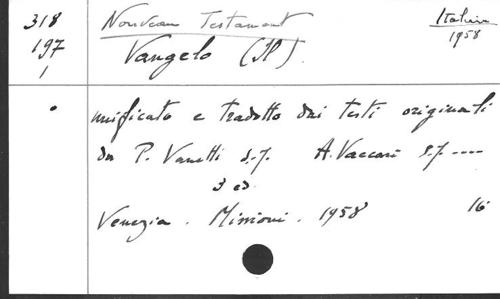 318 Nouveau Testament Italien
197 Vangelo (Il). 1958
1
unificato e tradotto dai testi originali
da P. Vanutti s.j. A. Vaccari s.j. ----
3 ed.
Venezia. Missioni. 1958 16